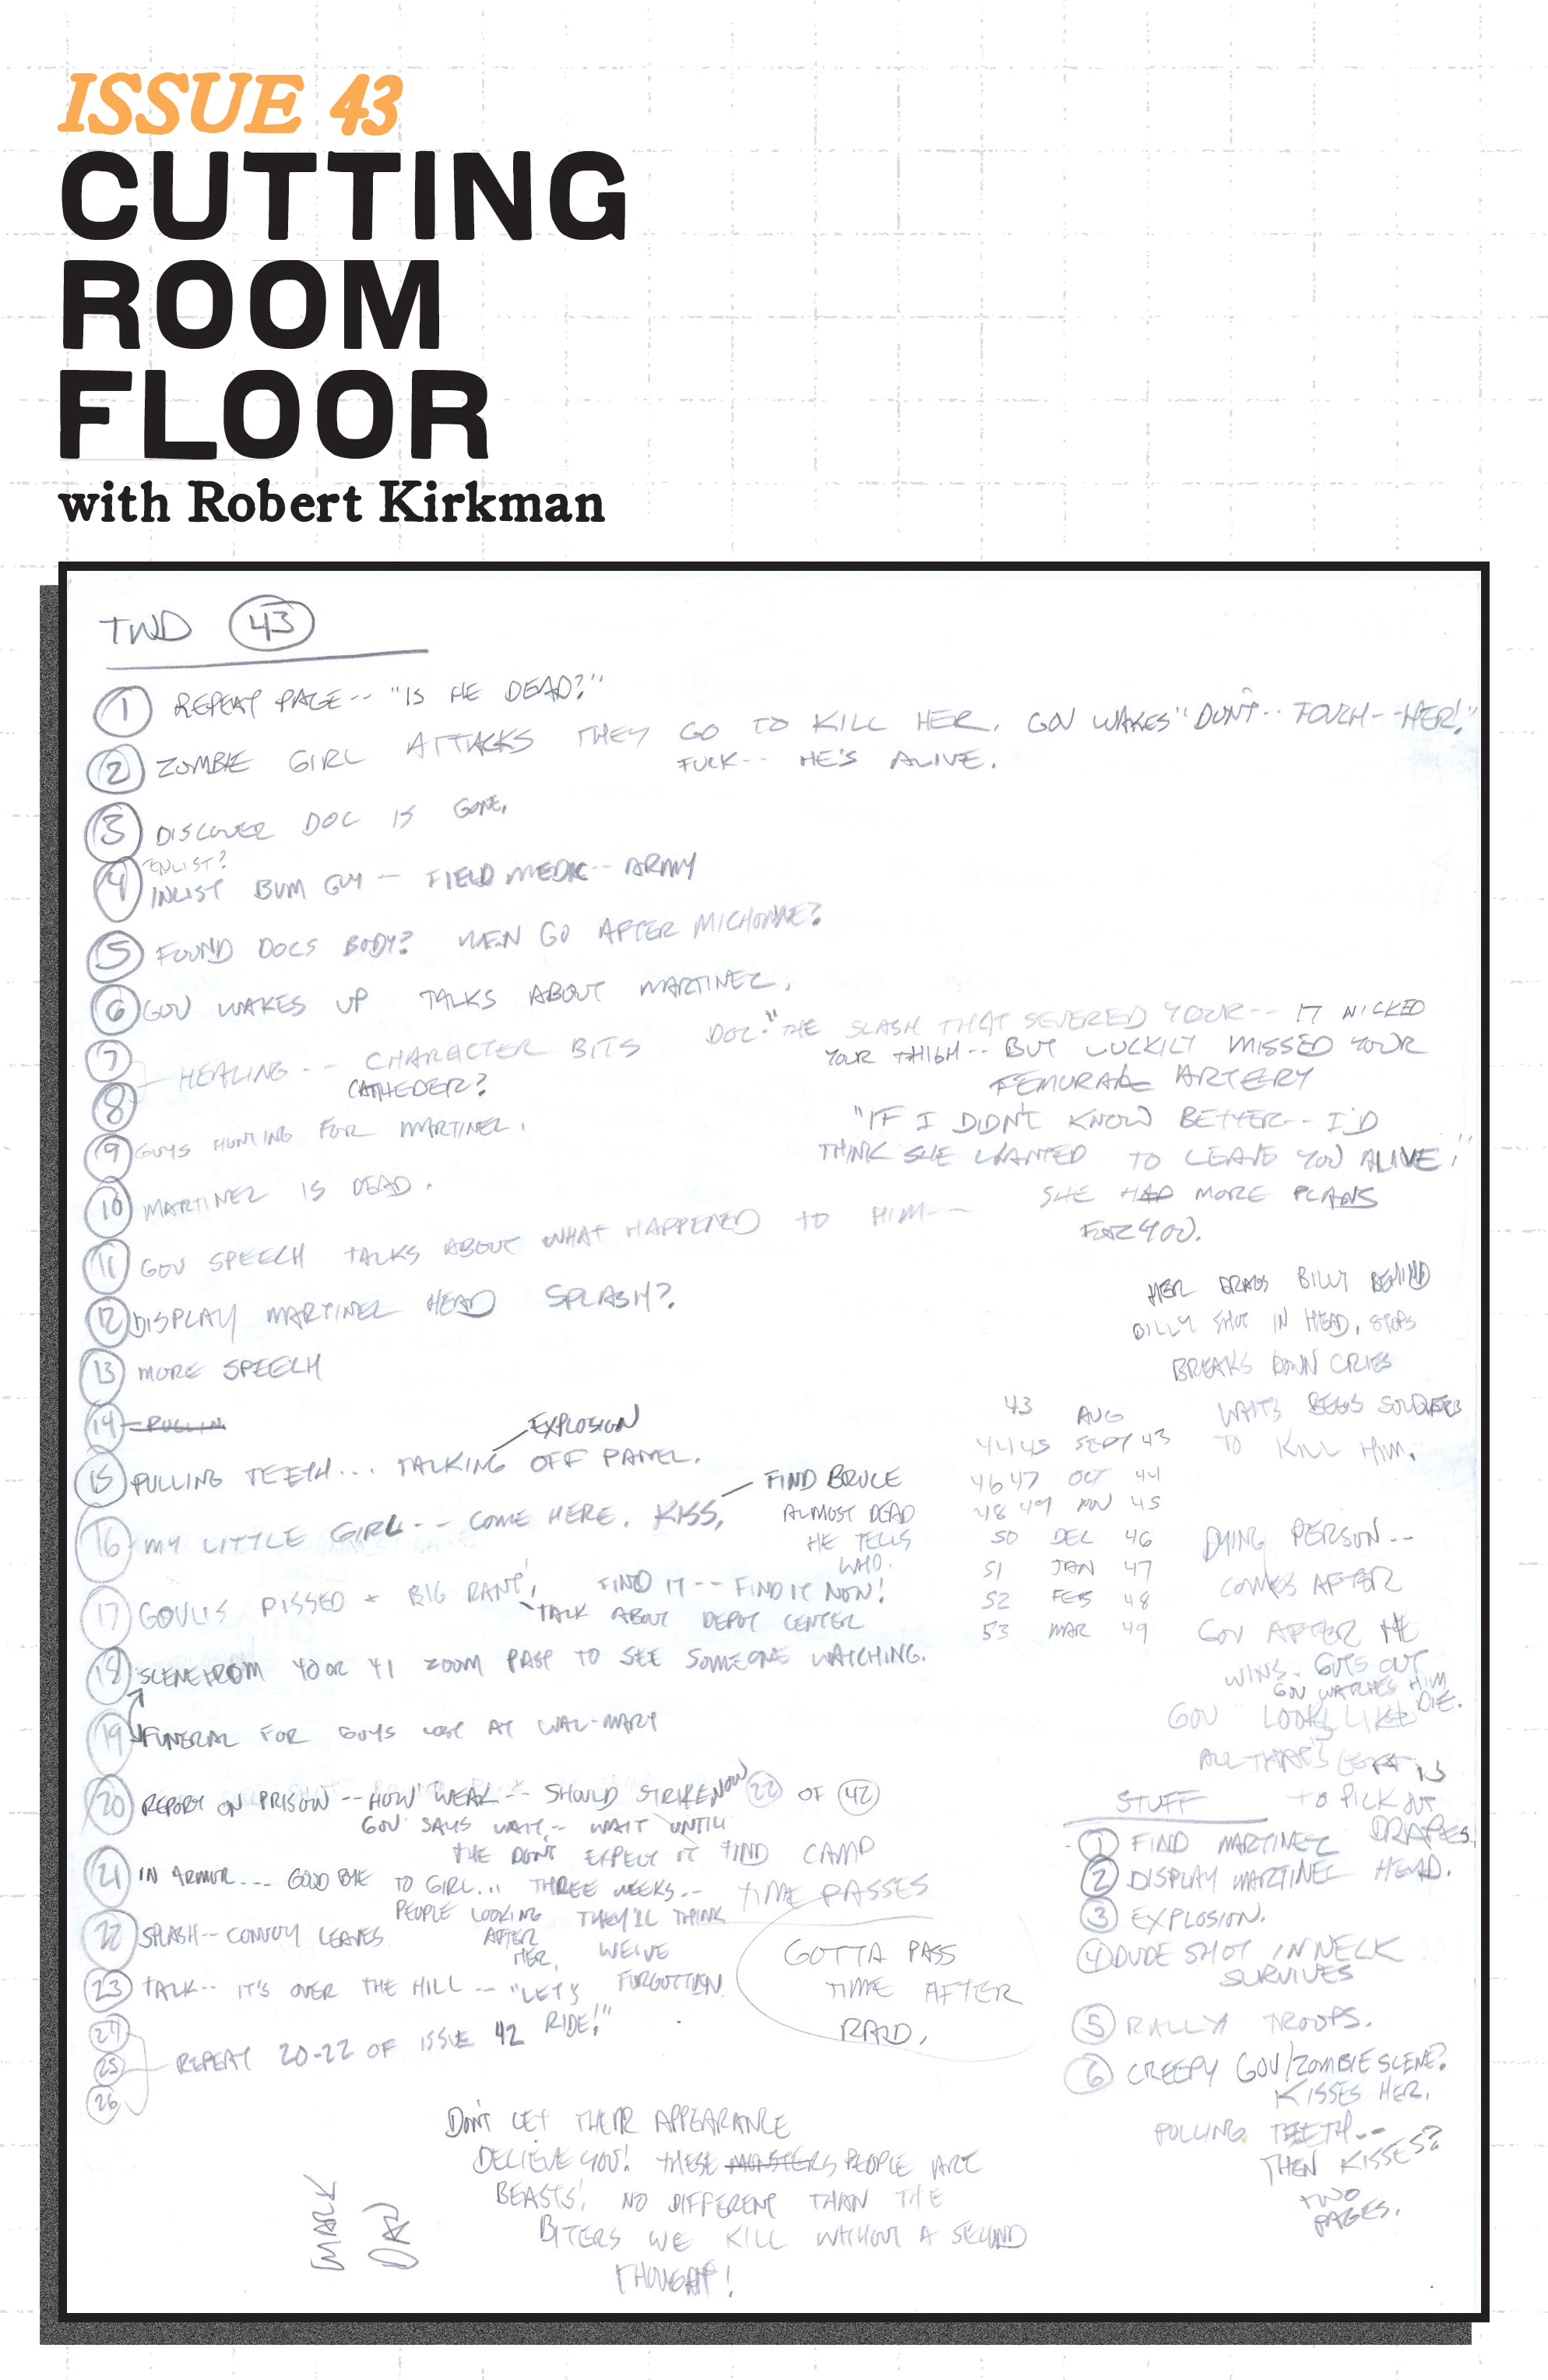 ISSUE 43
CUTTING
ROOM
FLOOR
with Robert Kirkman
TWD 43
1 REPEAT PAGE-- "IS HE DEAD?"
2 ZOMBIE GIRL ATTACKS THEY GO TO KILL HER. GOV WAKES "DON'T-- TOUCH--HER!"
FUCK-- HE'S ALIVE.
3 DISCOVER DOC IS GONE.
ENLIST?
4 INLIST BUM GUY -- FIELD MEDIC-- ARMY
5 FOUND DOCS BODY? MEN GO AFTER MICHONNE?
6 GOV WAKES UP TALKS ABOUT MARTINEZ.
7
8 HEALING-- CHARACTER BITS
CATHEDER?
DOC: "THE SLASH THAT SEVERED YOUR-- IT NICKED
YOUR THIGH-- BUT LUCKILY MISSED YOUR
FEMURAL ARTERY
"IF I DIDN'T KNOW BETTER-- I'D
THINK SHE WANTED TO LEAVE YOU ALIVE!"
SHE HAD MORE PLANS
FOR YOU.
9 GUYS HUNTING FOR MARTINEZ.
10 MARTINEZ IS DEAD.
11 GOV SPEECH TALKS ABOUT WHAT HAPPENED TO HIM--
12 DISPLAY MARTINEZ HEAD SPLASH?
13 MORE SPEECH
14 PULLIN
EXPLOSION
15 PULLING TEETH... TALKING OFF PANEL.
16 MY LITTLE GIRL-- COME HERE. KISS,
FIND BRUCE
ALMOST DEAD
HE TELLS
WHO.
17 GOV IS PISSED + BIG RANT, FIND IT-- FIND IT NOW!
TALK ABOUT DEPOT CENTER
18 SCENE FROM 40 OR 41 ZOOM PAST TO SEE SOMEONE WATCHING.
19 FUNERAL FOR GUYS LOST AT WAL-MART
20 REPORT ON PRISON -- HOW WEAK-- SHOULD STRIKE NOW 22 OF 42
GOV SAYS WAIT-- WAIT UNTIL
THE DON'T EXPECT IT FIND CAMP
21 IN ARMOR--- GOOD BYE TO GIRL... THREE WEEKS-- TIME PASSES
PEOPLE LOOKING AFTER HER.
THEY'LL THINK WE'VE FORGOTTEN
22 SPLASH-- CONVOY LEAVES
23 TALK-- IT'S OVER THE HILL -- "LET'S RIDE!"
24
25 REPEAT 20-22 OF ISSUE 42
26
GOTTA PASS
TIME AFTER
RAID.
HER DRAGS BILLY BEHIND
BILLY SHOT IN HEAD, STOPS
BREAKS DOWN CRIES
WAITS BEGS SOLDIERS
TO KILL HIM.
43 AUG
44 45 SEPT 43
46 47 OCT 44
48 49 NOV 45
50 DEC 46
51 JAN 47
52 FEB 48
53 MAR 49
DYING PERSON--
COMES AFTER
GOV AFTER HE
WINS. GUTS OUT
GOV WATCHES HIM
DIE.
GOV LOOKS LIKE
ALL THAT'S LEFT IS
TO PICK OUT
DRAPES.
STUFF
1 FIND MARTINEZ
2 DISPLAY MARTINEZ HEAD.
3 EXPLOSION.
4 DUDE SHOT IN NECK
SURVIVES
5 RALLY TROOPS.
6 CREEPY GOV/ZOMBIE SCENE?
KISSES HER.
PULLING TEETH--
THEN KISSES?
TWO
PAGES.
DON'T LET THEIR APPEARANCE
DECIEVE YOU! THESE MONSTERS PEOPLE ARE
BEASTS! NO DIFFERENT THAN THE
BITERS WE KILL WITHOUT A SECOND
THOUGHT!
MARK